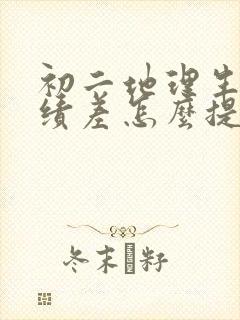 初二地理生
绩差怎么提
冬末籽